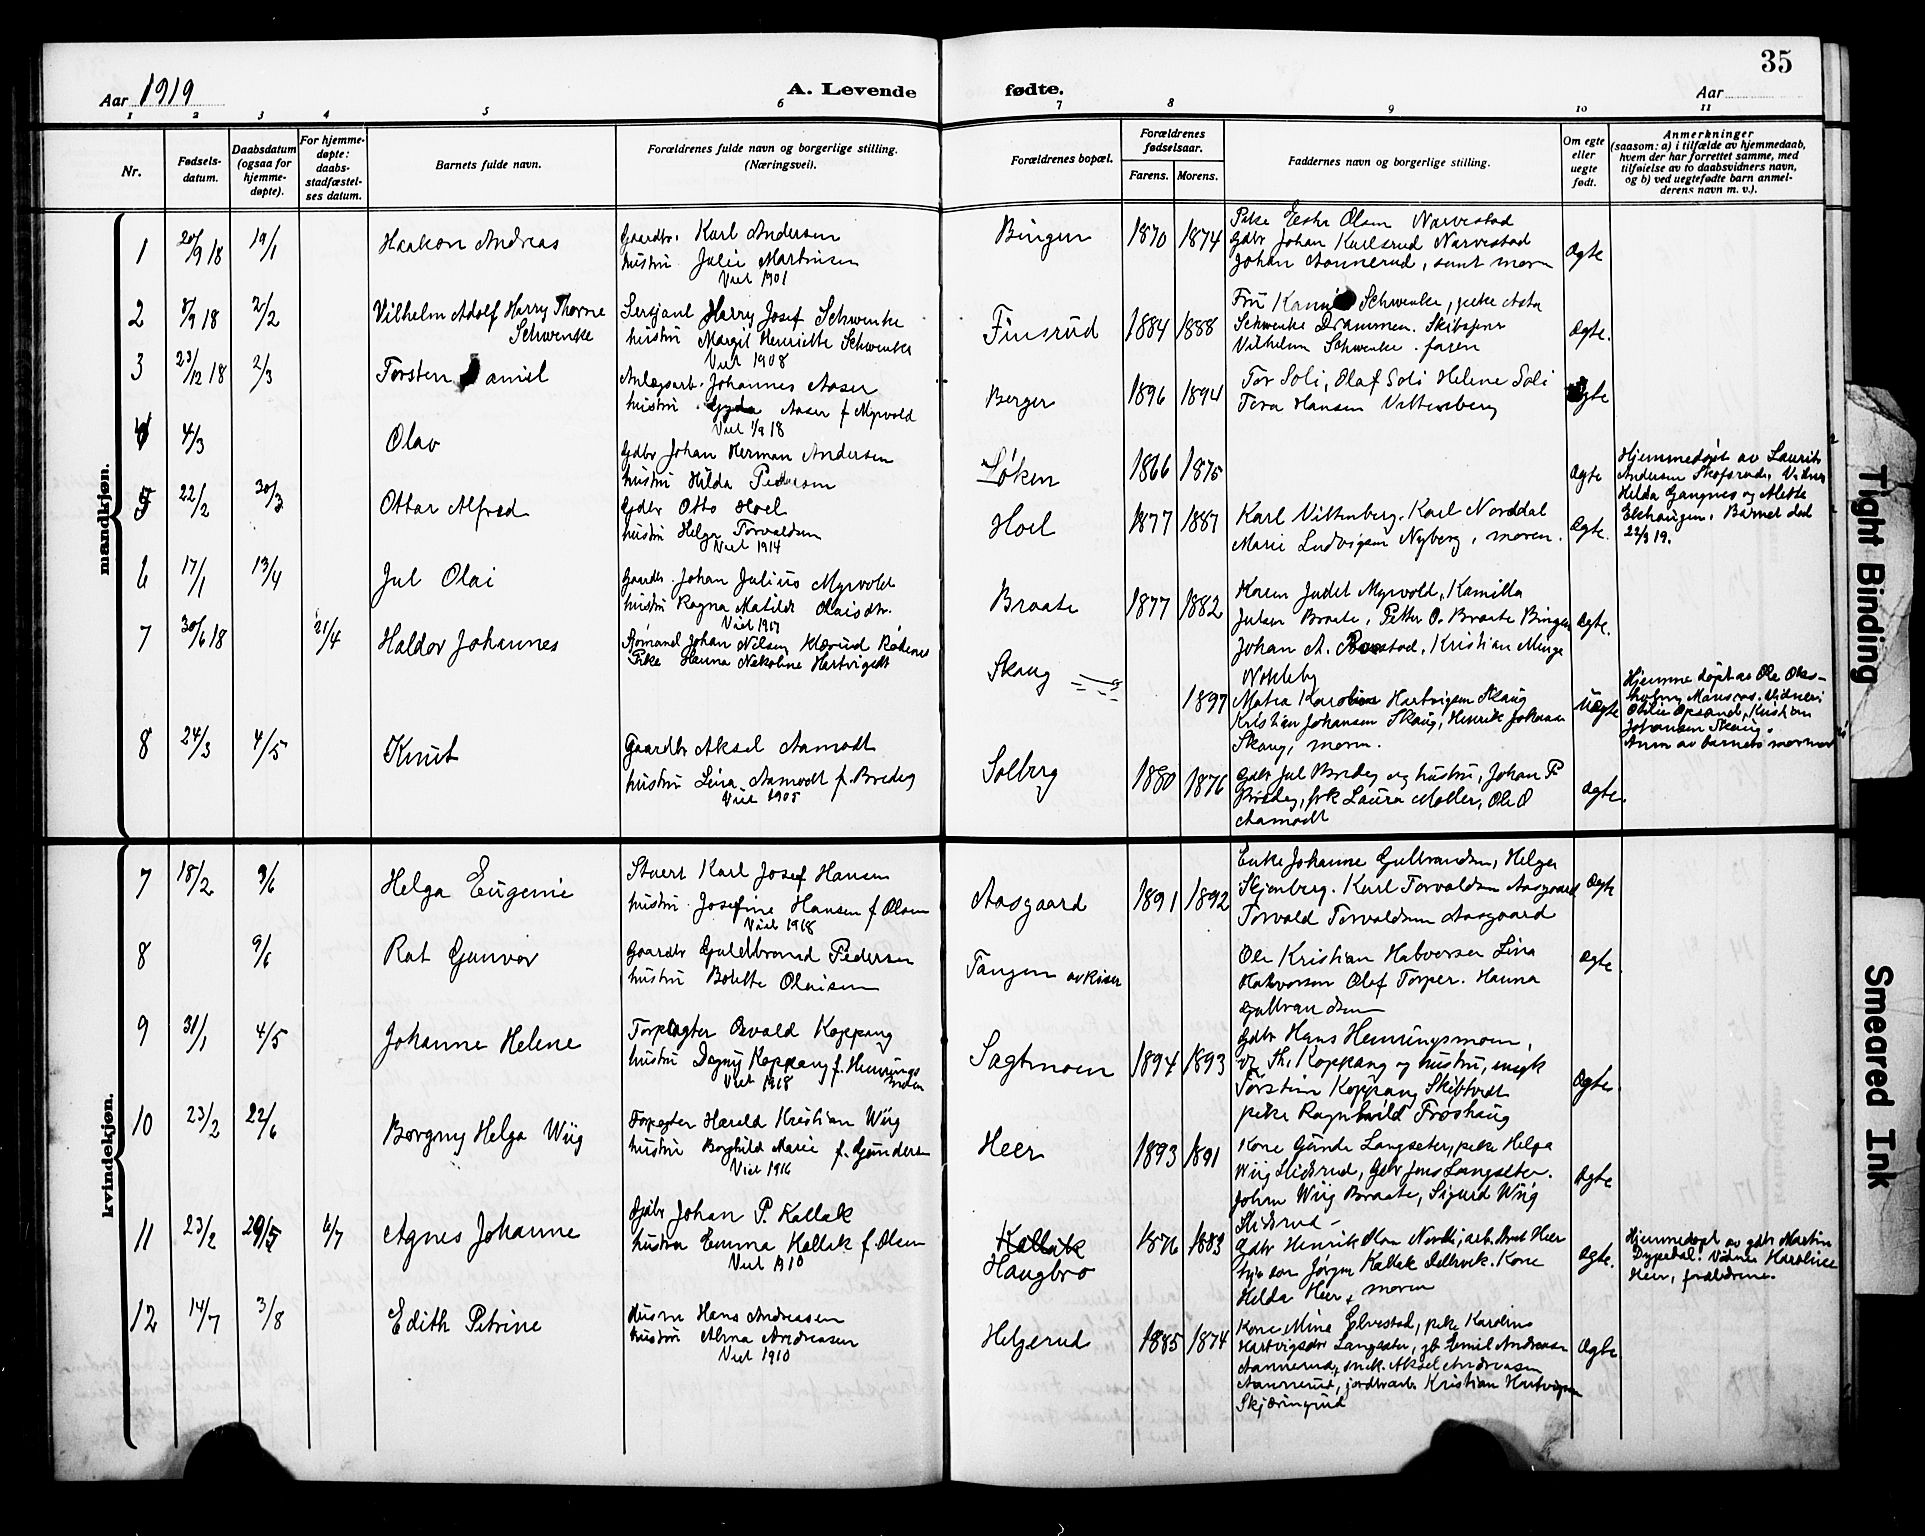 35
Aar 1919
A. Levende
fødte.
Aar
1 2 3 4 5 6 7 8 9 10 11
Nr.
Fødsels-
datum.
Daabsdatum
(ogsaa for
hjemme-
døpte).
For hjemme-
døpte:
daabs-
stadfæstel-
ses datum.
Barnets fulde navn.
Forældrenes fulde navn og borgerlige stilling.
(Næringsvei).
Forældrenes bopæl.
Forældrenes
fødselsaar.
Farens. Morens.
Faddernes navn og borgerlige stilling.
Om egte
eller
uegte
født.
Anmerkninger
(saasom: a) i tilfælde av hjemmedaab,
hvem der har forrettet samme, med
tilføielse av to daabsvidners navn,
og b) ved uegtefødte barn anmel-
derens navn m. v.).
mandkjøn.
1 20/9 18 19/1 Haakon Andreas
Gaardbr. Karl Andersen
hustru Julie Martinsen
Viet 1901
Bingen 1870 1874
Pike Olsen Narvestad
Gdbr Johan Karlsrud Narvestad
Johan Aannerud, samt moren
Ægte
2 8/9 18 2/2 Vilhelm Adolf Harry Thorne
Schwenke
Sersjant Harry Josef Schwenke
hustru Margit Henriette Schwenke
Viet 1908
Finsrud 1884 1888
Fru Schwenke, pike Asta
Schwenke Drammen. Skibsfører
Vilhelm Schwenke. faren
Ægte.
3 23/12 18 2/3 Torsten Daniel
Anlægsarb. Johannes Aaser
hustru Gyda Aaser f. Myrvold
Viet 1/9 18
Berger 1896 1894
Tor Soli, Olaf Soli Helene Soli
Tora Hansen Vittenberg
Ægte
4 4/3 Olav
Gdbr Johan Herman Andersen
hustru Hilda Pedersen
Løken 1866 1875
Ægte
Hjemmedøpt av Laurits
Andersen Skofsrud, Vidner
Helda Gangnes og Mette
Elshaugen. Barnet død
22/3 19.
5 22/2 30/3 Ottar Alfred
Gdbr Otto Hoel
hustru Helga Torvaldsen
Viet 1914
Hoel 1877 1887
Karl Vittenberg. Karl Norddal
Marie Ludvigsen Nyberg, moren.
Ægte.
6 17/1 13/4 Jul Olai
Gaardbr. Johan Julius Myrvold
hustru Ragna Matilde Olaisdtr.
Viet 1917
Braate 1877 1882
Karen Judit Myrvold, Kamilla
Julsen Braate, Petter O. Braate Bingen
Johan A. Kristian Menge
Nokleby
Ægte.
7 30/6 18 21/4 Haldor Johannes
Sjømand Johan Nilsen Klærud Rødenes
Pike Hanna Nekoline Hartvigsdt
Skaug 1897
Matea Karoline Hartvigsen Skaug
Kristian Johansen Skaug, Henrik Johansen
Skaug, moren.
Uægte
Hjemmedøpt av Ole Oks-
holen, Mansrøs. Vidner:
Opsand, Kristian
Johansen Skaug.
Anm av barnets mormor
8 24/3 4/5 Knut
Gaardbr Aksel Aamodt
hustru Lina Aamodt f. Bredeg
Viet 1905
Solberg 1880 1876
Gdbr Jul Bredeg og hustru, Johan P
Bredeg, frk Laura Møller, Ole O
Aamodt
Ægte.
kvindekjøn.
7 18/2 9/6 Helga Eugenie
Stuert Karl Josef Hansen
hustru Josefine Hansen f. Olsen
Viet 1918
Aasgaard 1891 1892
Enke Johanne Gulbrandsen, Helger
Skjenberg. Karl Torvaldsen Aasgaard
Torvald Torvaldsen Aasgaard
Ægte
8 9/6 Rut Gunvor
Gaardbr Guldbrand Pedersen
hustru Bolette Olaisen
Tangen av Riser
Ole Kristian Halvorsen Lina
Halvorsen Olaf Torper. Hanna
Gulbrandsen
Ægte.
9 31/1 4/5 Johanne Helene
Torplagter Osvald Koppang
hustru Dagny Koppang f. Hennings
moen
Viet 1918
Sagtmoen 1894 1893
Gdbr Hans Henningsmoen,
Th. Koppang og hustru, ungk
Torstein Koppang Skibtvedt
pike Ragnhild Froshaug
Ægte.
10 23/2 22/6 Borgny Helga Wiig
Harald Kristian Wiig
hustru Borghild Marie f. Gundersen
Viet 1916
Heer 1893 1891
Kone Gunda Langseter, pike Helga
Wiig Slidsrud, Gdbr Jens Langseter.
Johan Wiig Braate, Sigurd Wiig
Slidsrud
Ægte.
11 23/2 29/5 6/7 Agnes Johanne
Gdbr Johan P. Kallak
hustru Emma Kallak f. Olsen
Viet 1910
Kallak
Haugbro 1876 1883
Gdbr Henrik Olsen Nordli, arb. Heer
Jørgen Kallak Dillevik. Kone
Helda Heer, moren
Ægte.
Hjemmedøpt av gdbr Martin
Dypedal. Vidner Karoline
Heer, forældrene.
12 14/7 3/8 Edith Petrine
Husm Hans Andreasen
hustru Alma Andreasen
Viet 1910
Helgerud 1885 1874
Kone Mina Elvestad, pike Karoline
Hartvigsdtr Langseter, gb Emil Andreasen
Aannerud, snek. Aksel Andreasen
Aannerud, jordbrarb. Kristian Hartvigsen
Skjæringrud
Ægte.
Tight Binding
Smeared Ink